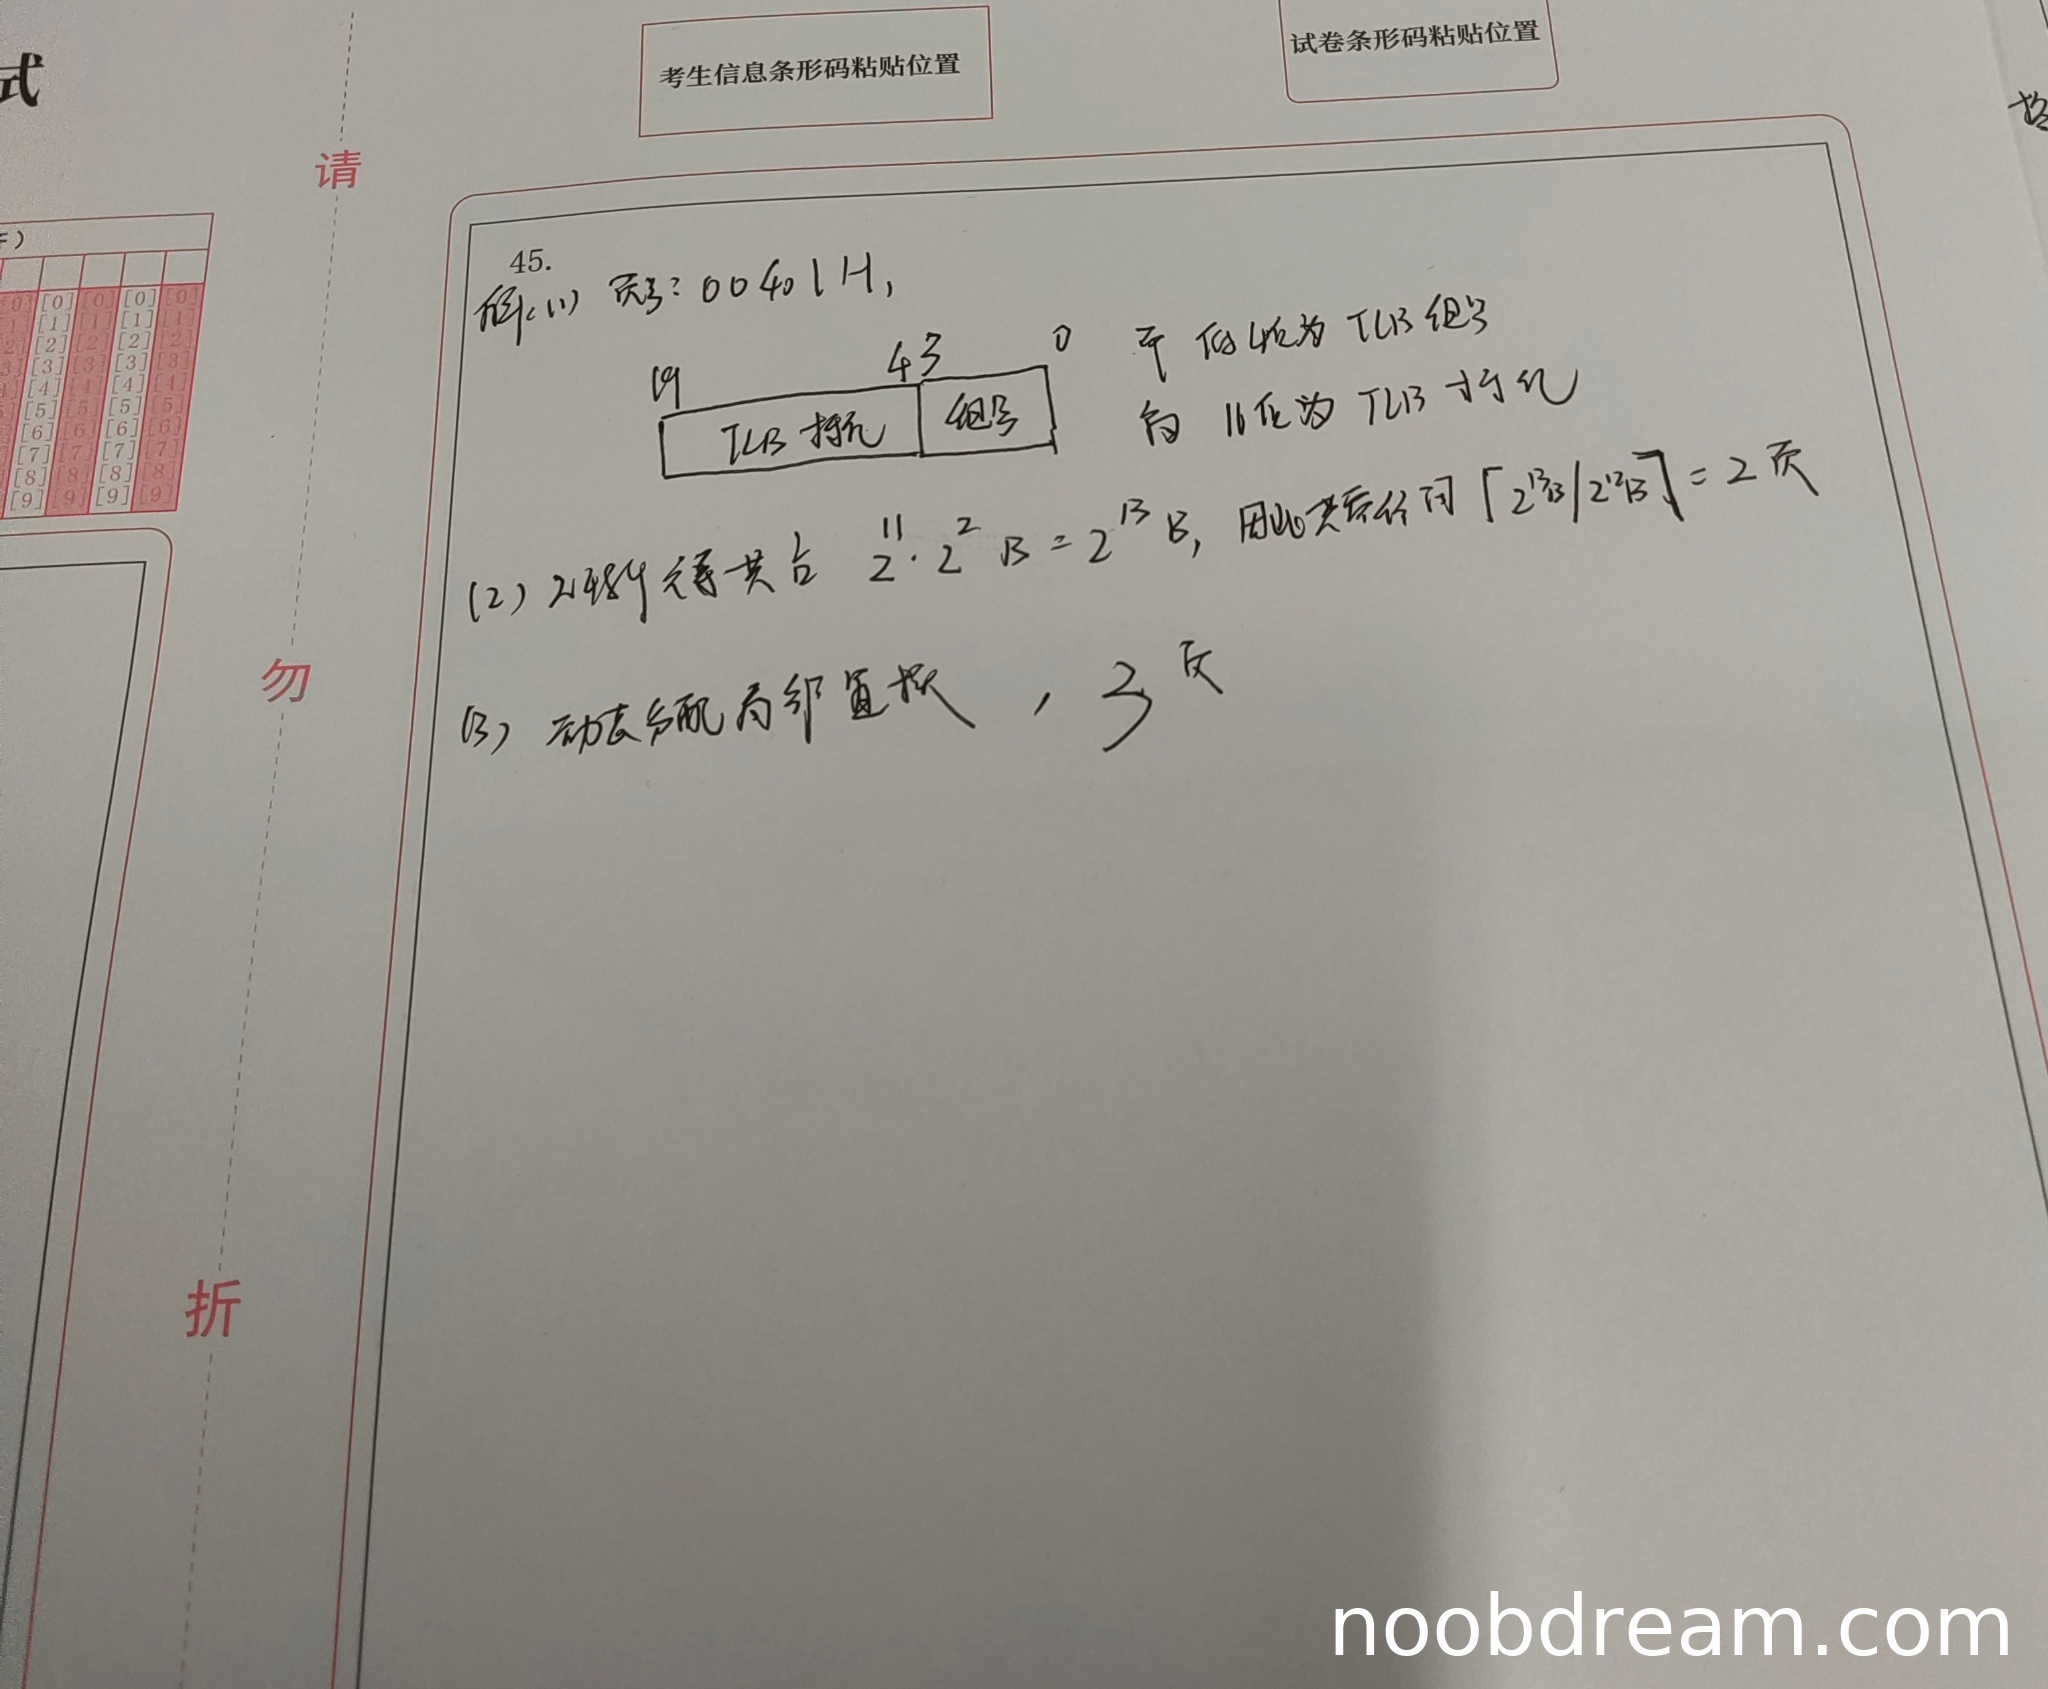 式
考生信息条形码粘贴位置
试卷条形码粘贴位置
请
勿
折
[0] [0] [0] [0] [0]
[1] [1] [1] [1]
[2] [2] [2] [2] [2]
[3] [3] [3] [3] [3]
[4] [4] [4] [4]
[5] [5] [5] [5] [5]
[6] [6] [6] [6]
[7] [7] [7] [7]
[8] [8] [8] [8]
[9] [9] [9] [9]
45.
解(1) 页号: 00401H,
19 4 3 0
TLB 标记 组号
低4位为 TLB 组号
16位为 TLB 标记
(2) 2048个元素共占 2^11 · 2^2 B = 2^13 B, 因此共需访问 ⌈2^13B/2^12B⌉ = 2 页
(3) 动态分配局部置换, 3页
noobdream.com